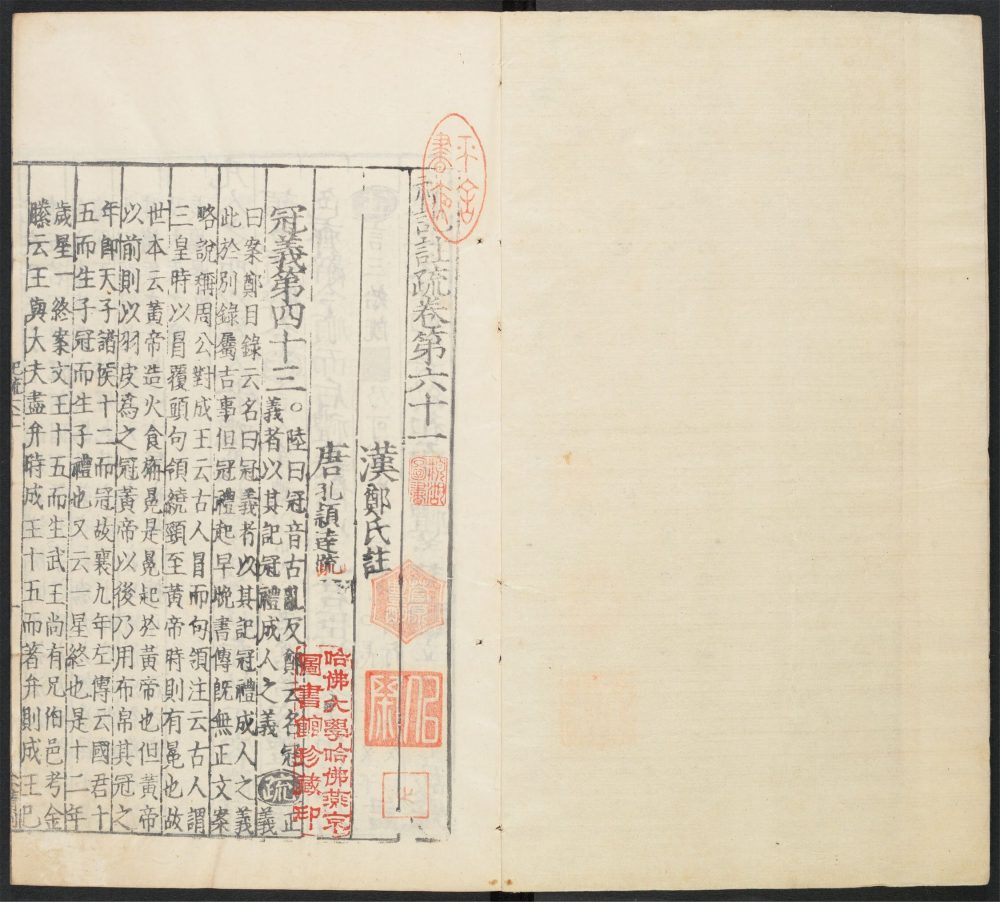 記註疏卷第六十一
漢鄭氏註
唐孔穎達疏
冠義第四十三
○陸曰冠音古亂反鄭云名冠
義者以其記冠禮成人之義
疏
正
義
曰案鄭目錄云名曰冠義者以其記冠禮成人之義
此於別錄屬吉事但冠禮起早晚書傳旣無正文案
略說稱周公對成王云古人冒而句領注云古人謂
三皇時以冒覆頭句領繞頸至黃帝時則有冕也故
世本云黃帝造火食旃冕是冕起於黃帝也但黃帝
以前則以羽皮爲之冠黃帝以後乃用布帛其冠之
年卽天子諸侯十二而冠故襄九年左傳云國君十
五而生子冠而生子禮也又云一星終也是十二年
歲星一終案文王十五而生武王尚有兄伯邑考金
縢云王與大夫盡弁時成王十五而著弁則成王已
哈佛大學哈佛燕京
圖書館珍藏印